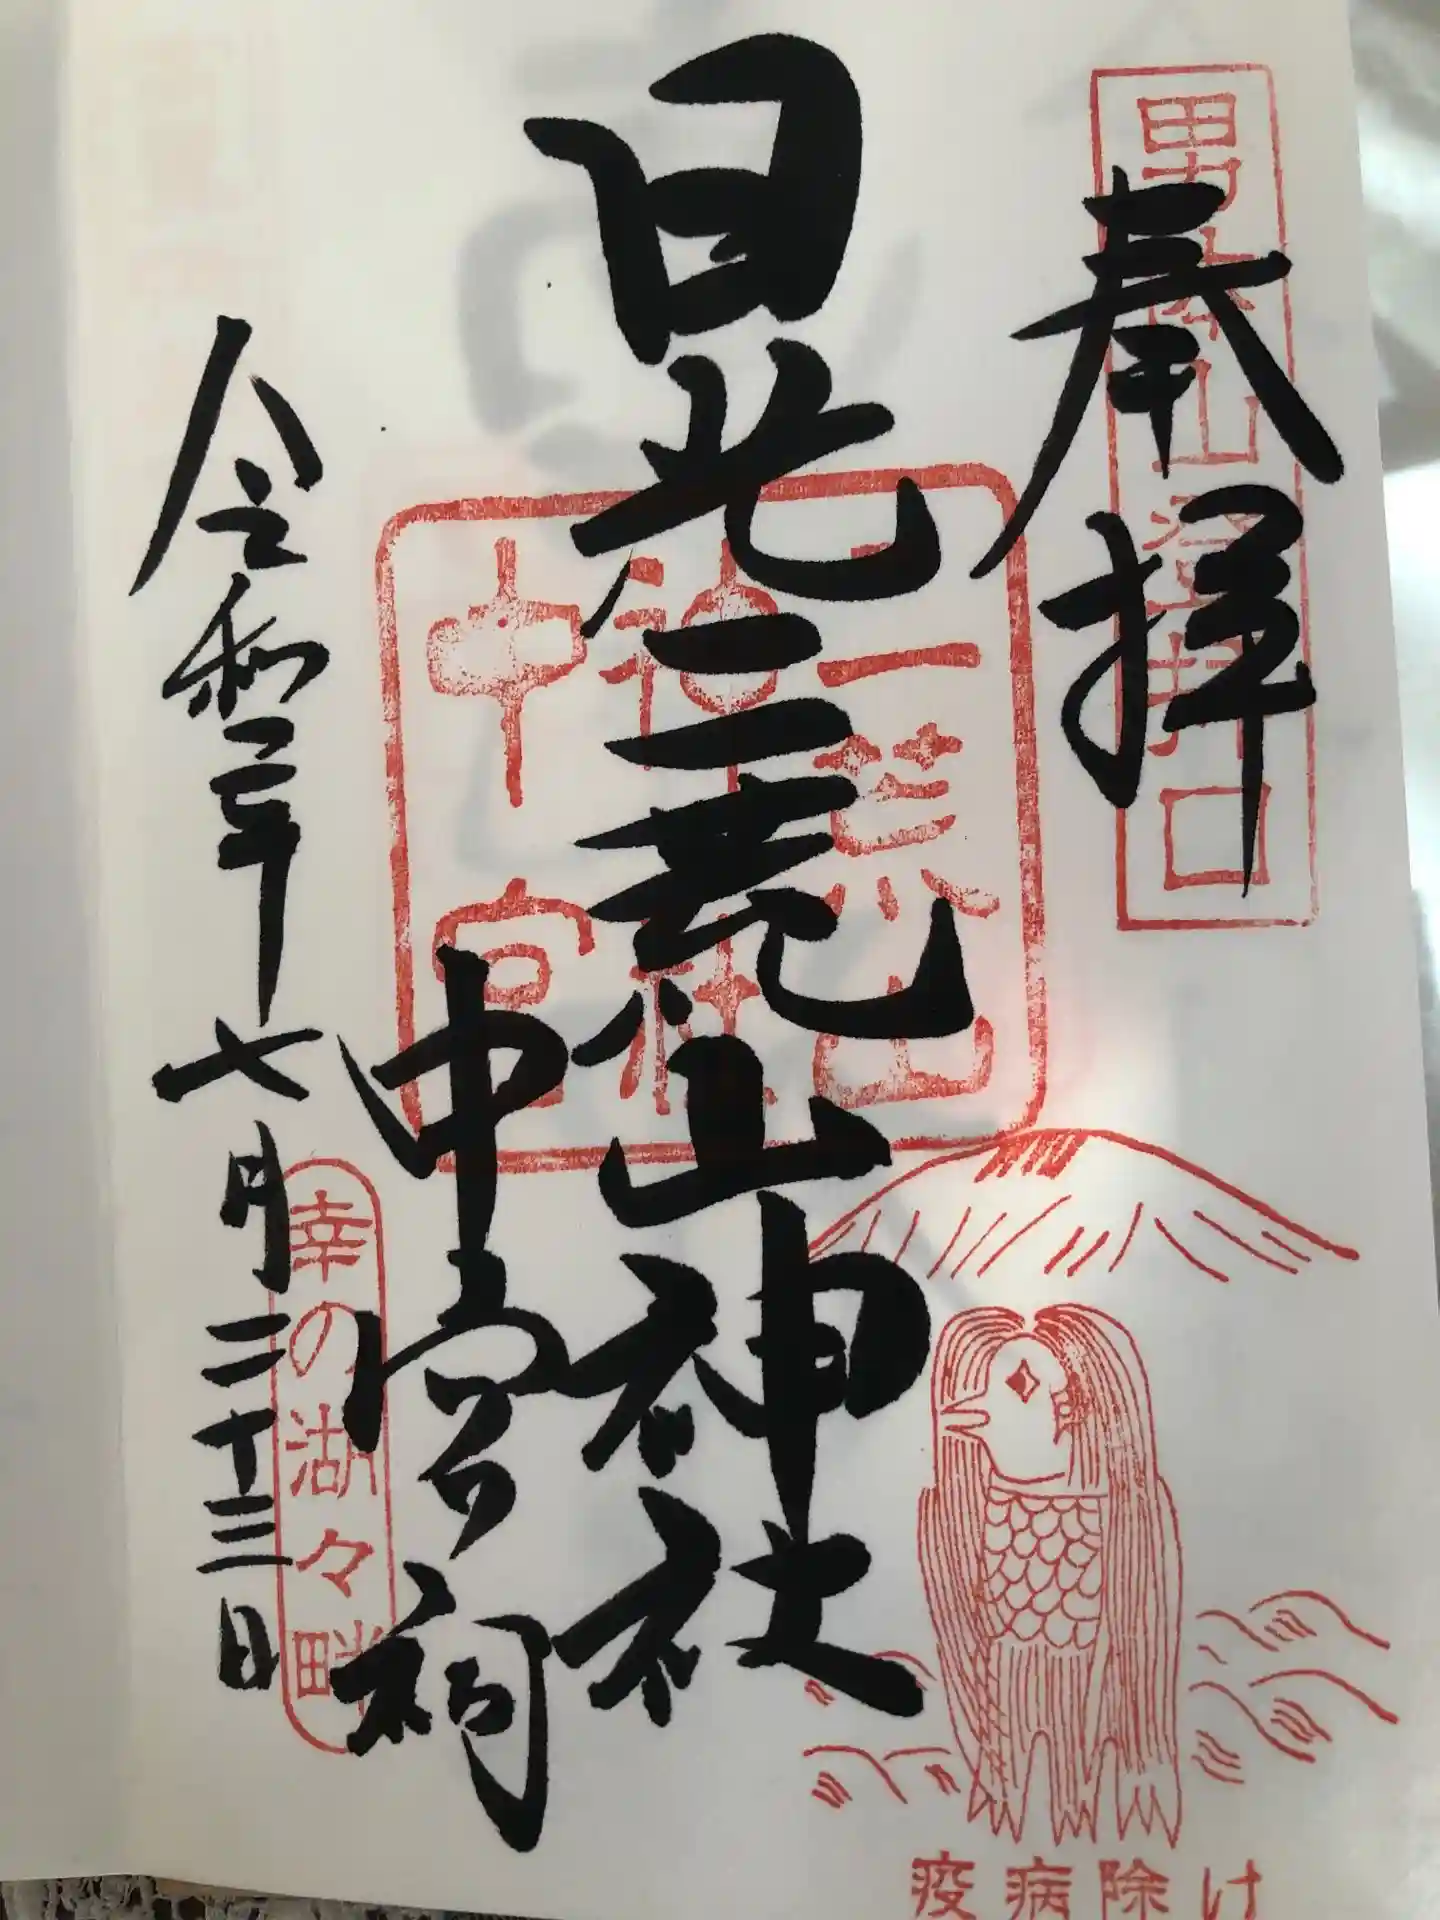 男体山登拝口
奉拝
日光二荒山神社
中宮祠
二荒山
神社
中宮
幸の湖々畔
令和二年七月二十三日
疫病除け